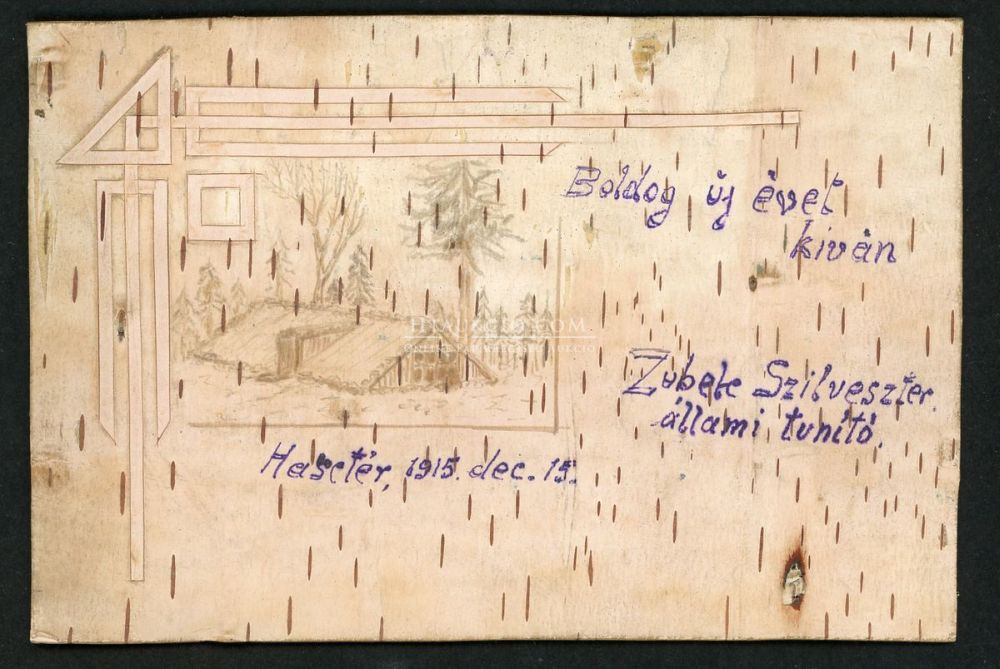 Boldog új évet
kíván
Zubek Szilveszter.
állami tanító.
Harctér, 1915. dec. 15.